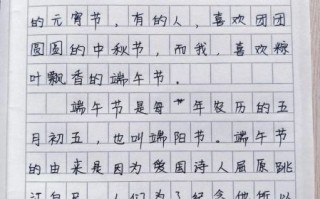 的元宵节，有的人，喜欢团团
圆圆的中秋节，而我，喜欢粽
叶飘香的端午节。
端午节是每年农历的五
月初五，也叫端阳节。端午节
的由来是因为爱国诗人屈原跳
江自尽，人们为了纪念他所以